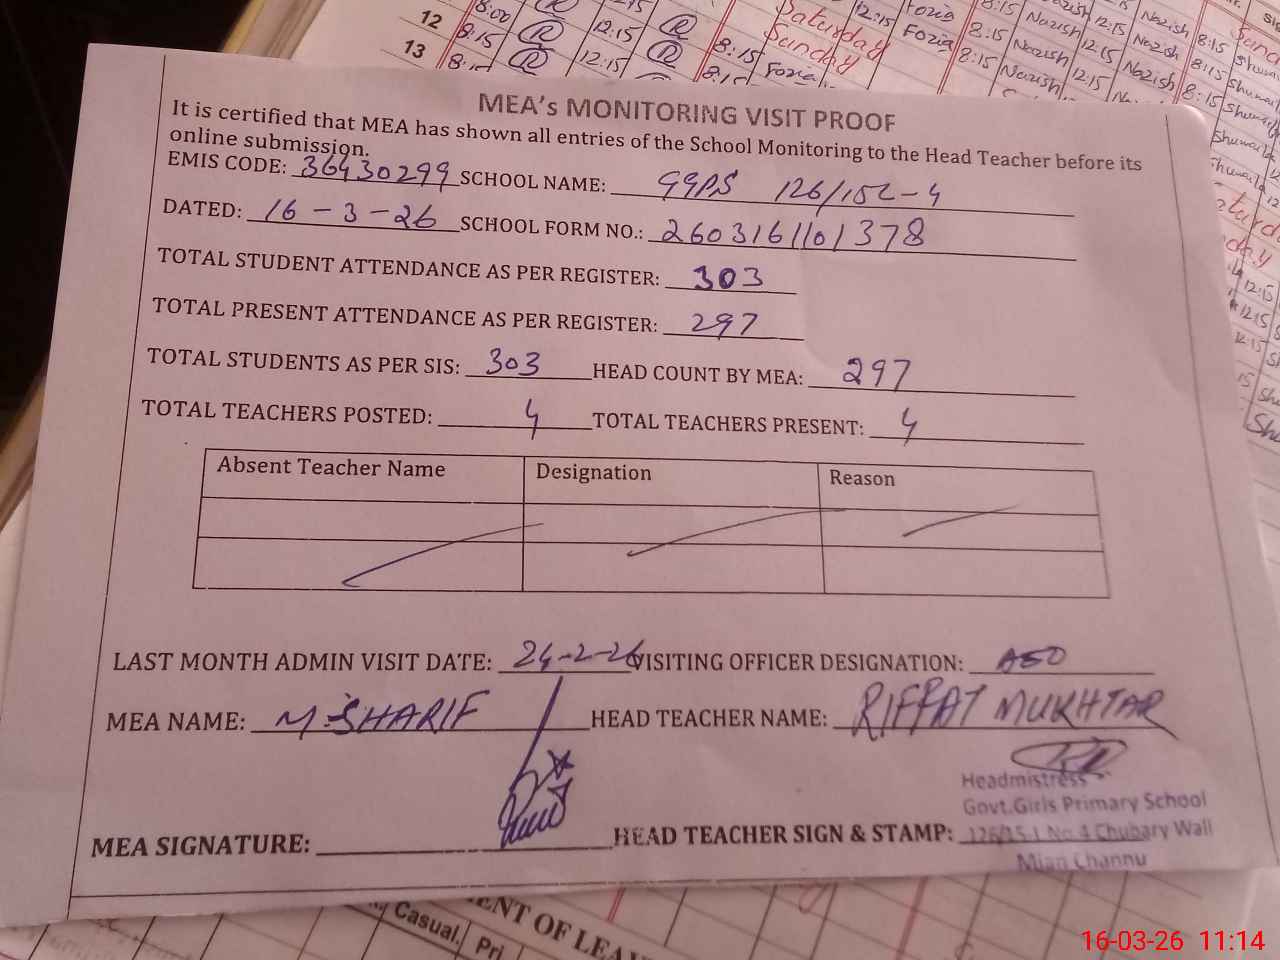 12 8:00 R 12:15 R
13 8:15 R 12:15 R 8:15 Saturday Sunday 12:15 Fozia 8:15 Nazish 12:15 Nazish 8:15 Shumaila
8:15 Fozia Fozia 8:15 Nazish 12:15 Nazish 8:15
MEA's MONITORING VISIT PROOF
It is certified that MEA has shown all entries of the School Monitoring to the Head Teacher before its
online submission.
EMIS CODE: 36430299 SCHOOL NAME: GGPS 126/15L-4
DATED: 16-3-26 SCHOOL FORM NO.: 2603161101378
TOTAL STUDENT ATTENDANCE AS PER REGISTER: 303
TOTAL PRESENT ATTENDANCE AS PER REGISTER: 297
TOTAL STUDENTS AS PER SIS: 303 HEAD COUNT BY MEA: 297
TOTAL TEACHERS POSTED: 4 TOTAL TEACHERS PRESENT: 4
Absent Teacher Name Designation Reason
LAST MONTH ADMIN VISIT DATE: 24-2-26 VISITING OFFICER DESIGNATION: AEO
MEA NAME: M. SHARIF HEAD TEACHER NAME: RIFFAT MUKHTAR
Headmistress
Govt.Girls Primary School
MEA SIGNATURE: HEAD TEACHER SIGN & STAMP: 126/15-L No.4 Chubary Wall
Mian Channu
Casual.
Pri
ENT OF LEA
16-03-26 11:14